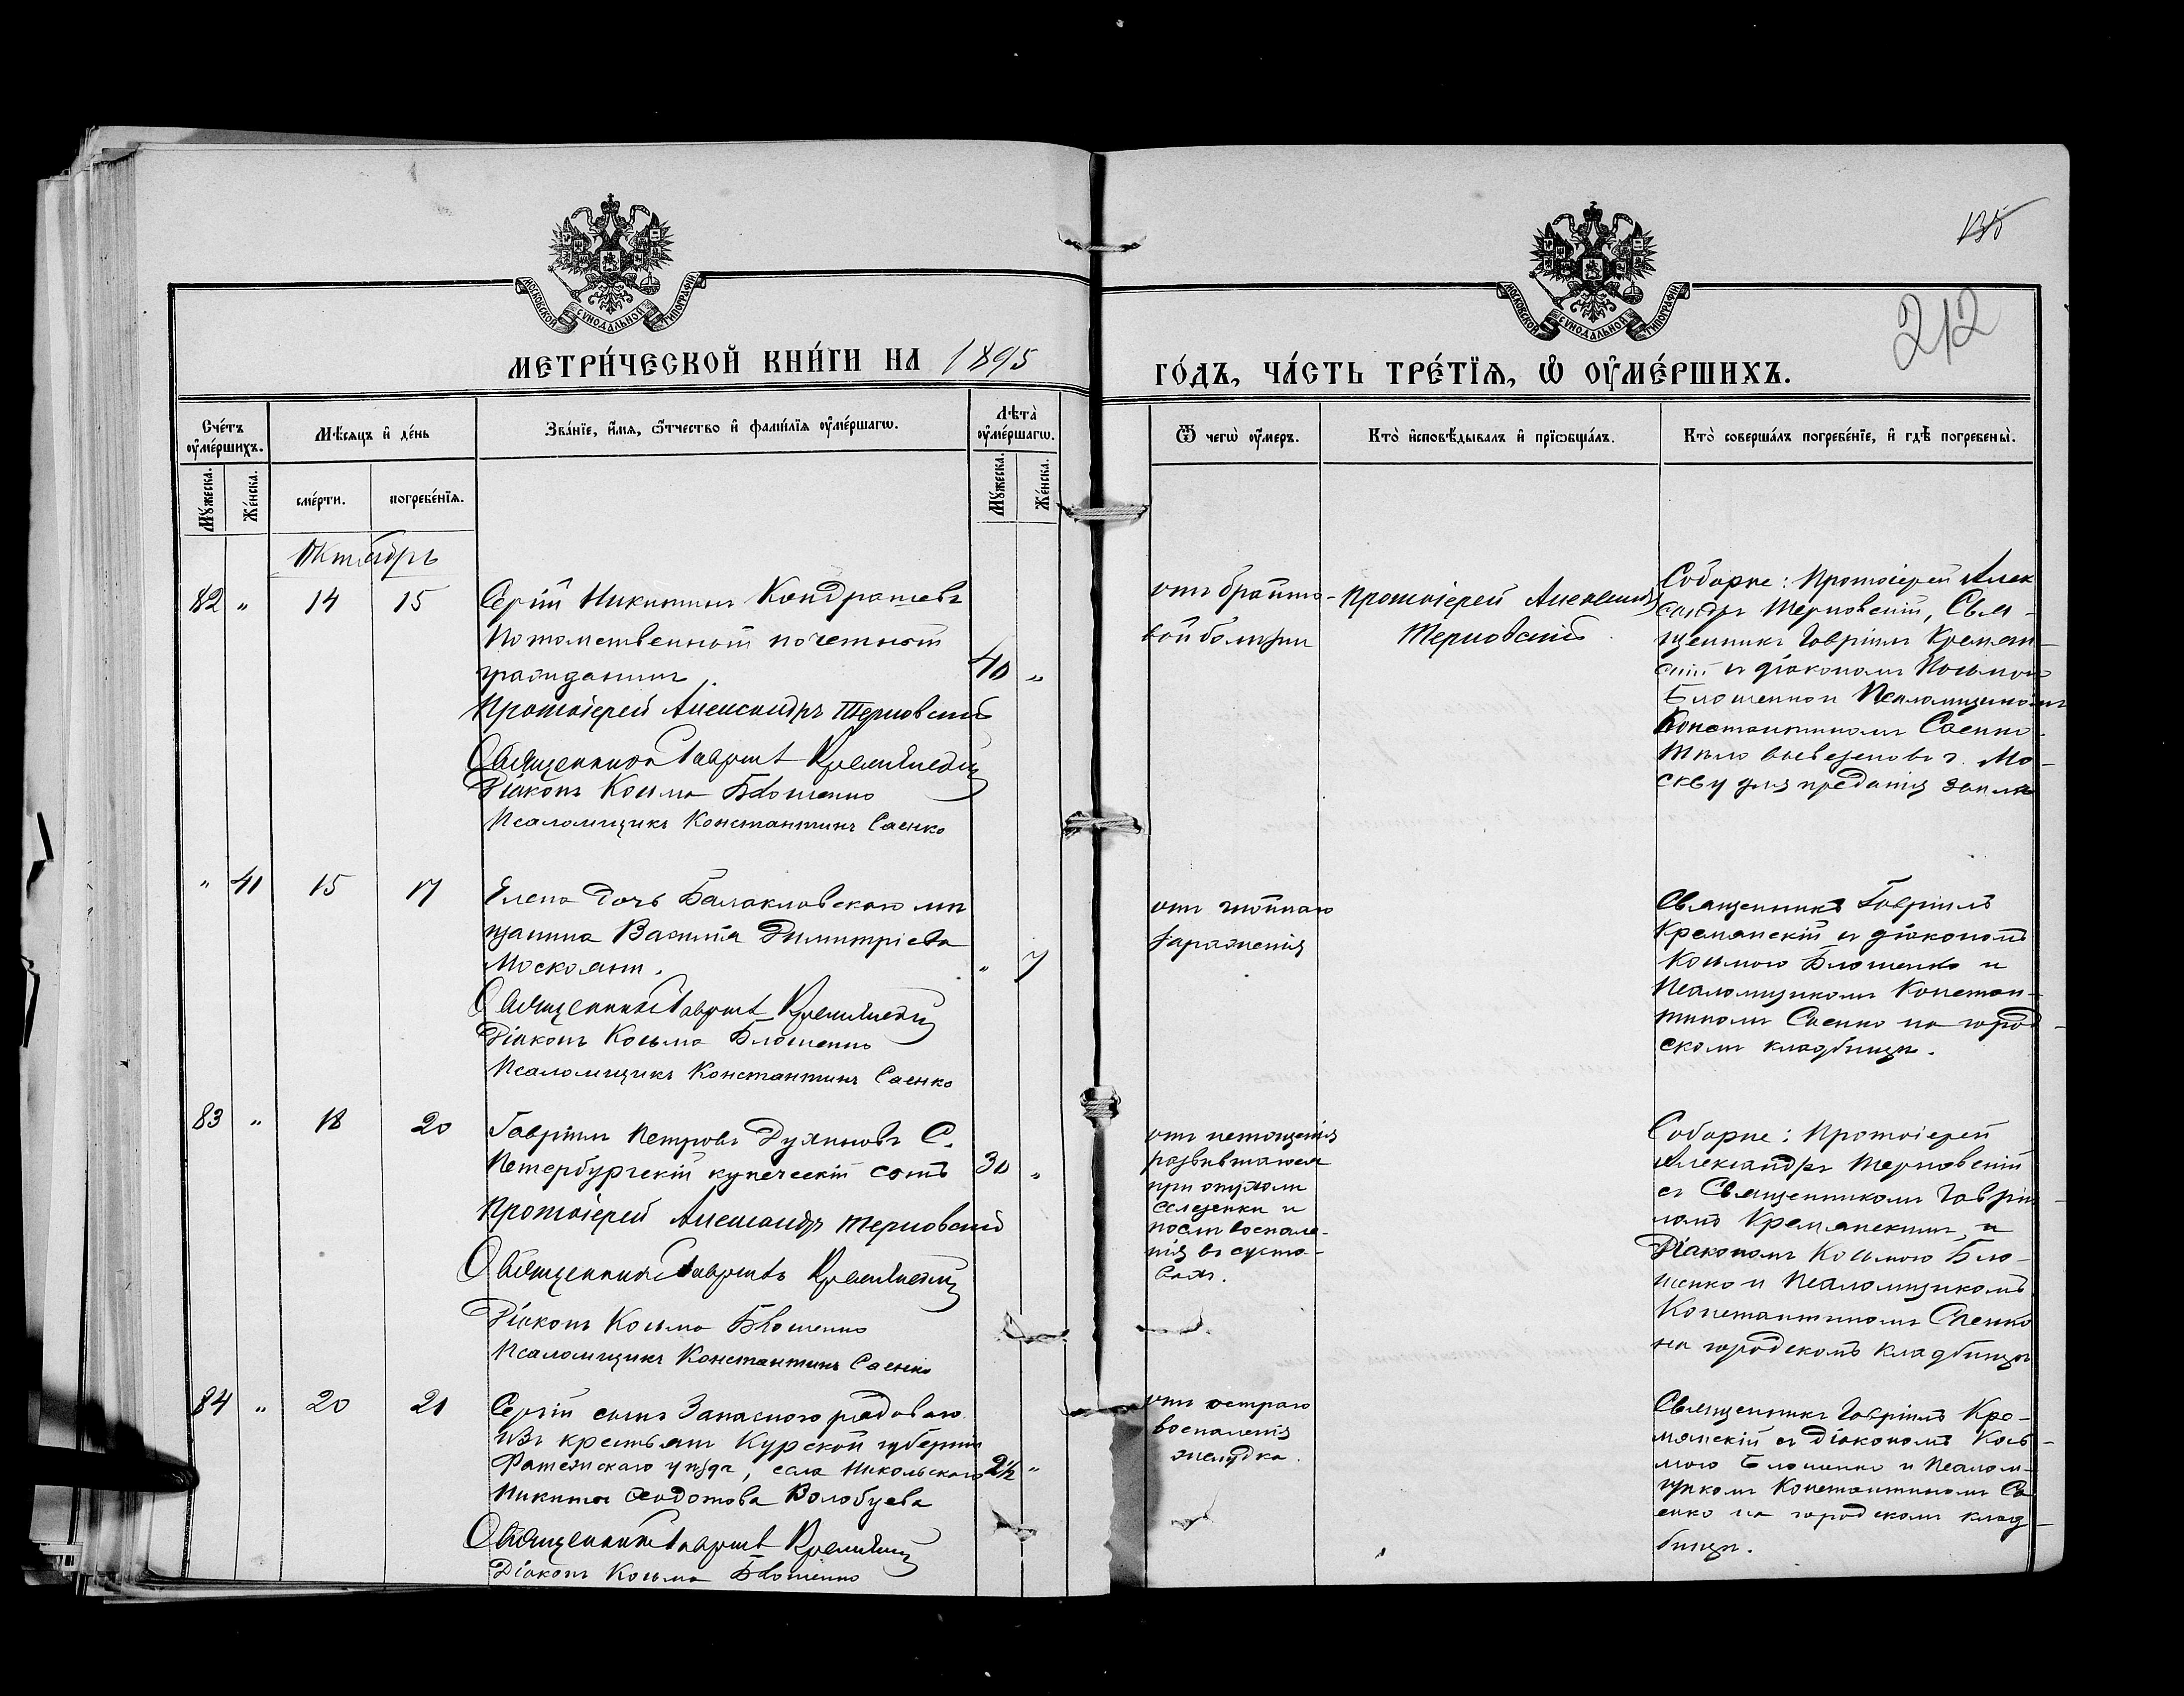 135
212
МОСКОВСКОЙ СѴНОДАЛЬНОЙ ТИПОГРАФІИ
МОСКОВСКОЙ СѴНОДАЛЬНОЙ ТИПОГРАФІИ
МЕТРИ́ЧЕСКОЙ КНИ́ГИ НА 1895
ГО́ДЪ, ЧА́СТЬ ТРЕ́ТІѦ, Ѡ҆ ОУ҆МЕ́РШИХЪ.
Сче́тъ оу҆ме́ршихъ.
Мѣ́сяцъ и҆ де́нь
Зва́нїе, и҆́мѧ, ѻ҆́тчество и҆ фами́лїѧ оу҆ме́ршагѡ.
Лѣ́та̀ оу҆ме́ршагѡ.
Ѿ чегѡ̀ оу҆́меръ.
Кто̀ и҆сповѣ́дывалъ и҆ прїѡбща́лъ.
Кто̀ соверша́лъ погребе́нїе, и҆ гдѣ̀ погребены̀.
Му́жеска.
Же́нска.
сме́рти.
погребе́нїѧ.
Му́жеска.
Же́нска.
Октябрь
82 „ 14 15
Сергій Никитинъ Кондрашевъ
Потомственный почетный
гражданинъ.
40 „
Протоіерей Александръ Терновскій
Священникъ Гавріилъ Кремянскій
Діаконъ Косьма Блошенко
Псаломщикъ Константинъ Саенко
отъ брайто-
вой болѣзни
Протоіерей Александръ
Терновскій.
Соборне: Протоіерей Алек
сандръ Терновскій, Свя-
щенникъ Гавріилъ Кремян-
скій съ діакономъ Косьмою
Блошенко и Псаломщикомъ
Константиномъ Саенко.
Тѣло вывезено въ г. Мо-
скву для преданія землѣ
„ 41 15 17
Елена дочь Балаклавскаго мѣ
щанина Василія Димитріева
Москоянъ.
„ 7
Священникъ Гавріилъ Кремянскій
Діаконъ Косьма Блошенко
Псаломщикъ Константинъ Саенко
отъ гнойнаго
зараженія
Священникъ Гавріилъ
Кремянскій съ діакономъ
Косьмою Блошенко и
Псаломщикомъ Констан-
тиномъ Саенко на город-
скомъ кладбищѣ.
83 „ 18 20
Гавріилъ Петровъ Духиновъ С.
Петербургскій купеческій сынъ
30 „
Протоіерей Александръ Терновскій
Священникъ Гавріилъ Кремянскій
Діаконъ Косьма Блошенко
Псаломщикъ Константинъ Саенко
отъ истощенія
развившагося
при опухоли
селезенки и
послѣ воспале-
нія въ суста-
вахъ.
Соборне: Протоіерей
Александръ Терновскій
съ Священникомъ Гаврі-
иломъ Кремянскимъ, и
Діакономъ Косьмою Бло-
шенко и Псаломщикомъ
Константиномъ Саенко
на городскомъ кладбищѣ
84 „ 20 21
Сергій сынъ Запаснаго рядоваго
изъ крестьянъ Курской губерніи
Фатежскаго уѣзда, села Никольскаго
Никиты Ѳеодотова Волобуева
2½ „
Священникъ Гавріилъ Кремянскій
Діаконъ Косьма Блошенко
отъ остраго
воспаленія
желудка.
Священникъ Гавріилъ Кре-
мянскій съ діакономъ Кось-
мою Блошенко и Псалом-
щикомъ Константиномъ Са
енко на городскомъ клад-
бищѣ.